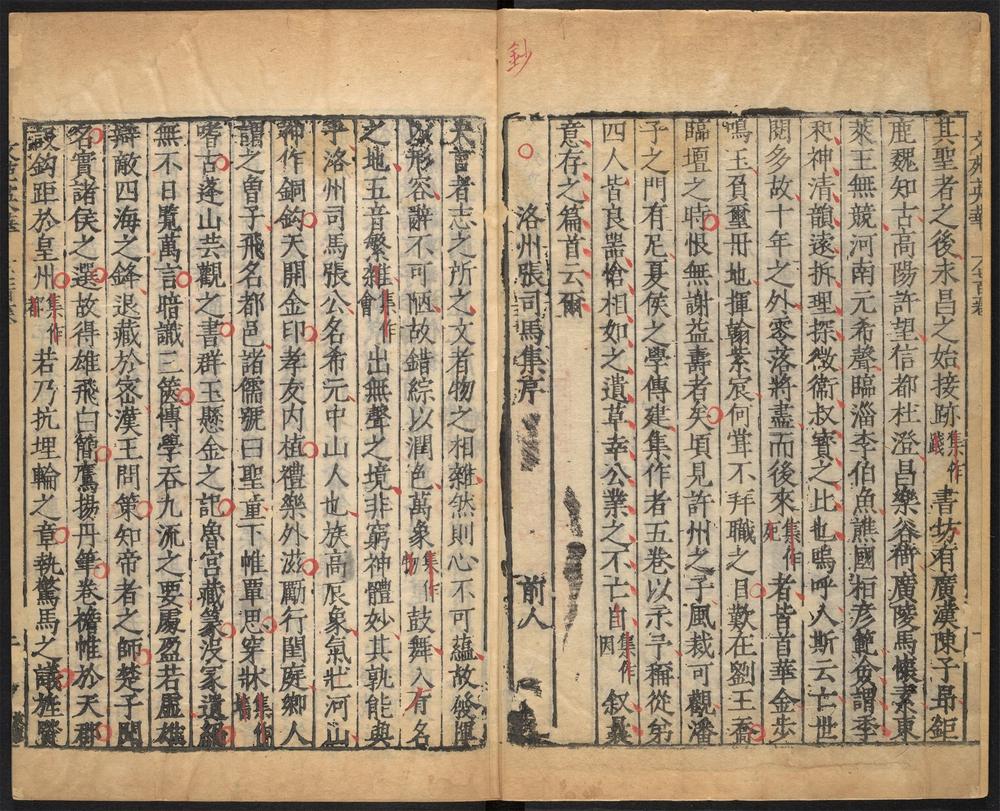 鈔
其聖者之後末昌之始接跡集作踐書坊有廣漢陳子昂鉅
鹿魏知古高陽許望信都杜澄昌樂谷倚廣陵馬懷素東
萊王無競河南元希聲臨淄李伯魚譙國桓彥範僉謂季
和神清韻遠拆理探微衞叔寶之比也嗚呼入斯云亡世
閱多故十年之外零落將盡而後來集作死者皆首華金步
鳴玉負璽冊地揮翰紫宸何嘗不拜職之日歎在劉王喬
臨壇之時恨無謝益壽者矣頃見許州之子風裁可觀潘
子之門有尼夏侯之學傳建集作者五卷以示予稱從弟
四人皆良噐愴相如之遺草幸公業之不亡自集作因叙曩
意存之篇首云爾
洛州張司馬集序 前人
夫言者志之所之文者物之相雜然則心不可蘊故發揮
以形容辭不可陋故錯綜以潤色萬象集作物鼓舞入有名
之地五音繁雜集作會出無聲之境非窮神體妙其孰能與
乎洛州司馬張公名希元中山人也族高辰象氣壯河山
神作銅鈎天開金印孝友內植禮樂外滋勵行閨庭鄉人
謂之曾子飛名都邑諸儒號曰聖童下帷覃思穿牀集作
嗜古蓬山芸觀之書群玉懸金之記魯宮藏篆汲冢遺
無不日覧萬言暗識三篋傳學吞九流之要處盈若虛雄
辯敵四海之鋒退藏於密漢王問策知帝者之師楚子問
名實諸侯之選故得雄飛白簡鷹揚丹筆卷襜帷於天郡
設鈎距於皇州集作都若乃抗埋輪之章執驚馬之議旌賢